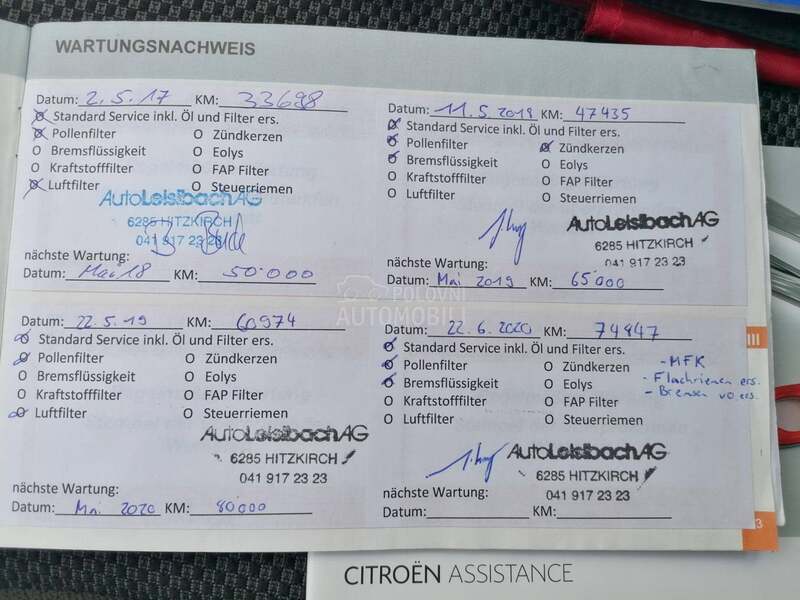 WARTUNGSNACHWEIS
Datum: 2.5.17 KM: 33698
Standard Service inkl. Öl und Filter ers.
Pollenfilter O Zündkerzen
O Bremsflüssigkeit O Eolys
O Kraftstofffilter O FAP Filter
Luftfilter O Steuerriemen
AutoLeisibachAG
6285 HITZKIRCH
041 917 23 23
nächste Wartung:
Datum: Mai 18 KM: 50.000
Datum: 11.5.2018 KM: 47435
Standard Service inkl. Öl und Filter ers.
Pollenfilter Zündkerzen
Bremsflüssigkeit O Eolys
O Kraftstofffilter O FAP Filter
O Luftfilter O Steuerriemen
AutoLeisibachAG
6285 HITZKIRCH
041 917 23 23
nächste Wartung:
Datum: Mai 2019 KM: 65000
POLOVNI
AUTOMOBILI
Datum: 22.5.19 KM: 60974
Standard Service inkl. Öl und Filter ers.
Pollenfilter O Zündkerzen
O Bremsflüssigkeit O Eolys
O Kraftstofffilter O FAP Filter
Luftfilter O Steuerriemen
AutoLeisibachAG
6285 HITZKIRCH
041 917 23 23
nächste Wartung:
Datum: Mai 2020 KM: 80000
Datum: 22.6.2020 KM: 74947
Standard Service inkl. Öl und Filter ers.
Pollenfilter O Zündkerzen
Bremsflüssigkeit O Eolys
O Kraftstofffilter O FAP Filter
O Luftfilter O Steuerriemen
- MFK
- Flachriemen ers.
- Bremsen vo ers.
AutoLeisibachAG
6285 HITZKIRCH
041 917 23 23
nächste Wartung:
Datum: KM:
III
3
CITROËN ASSISTANCE